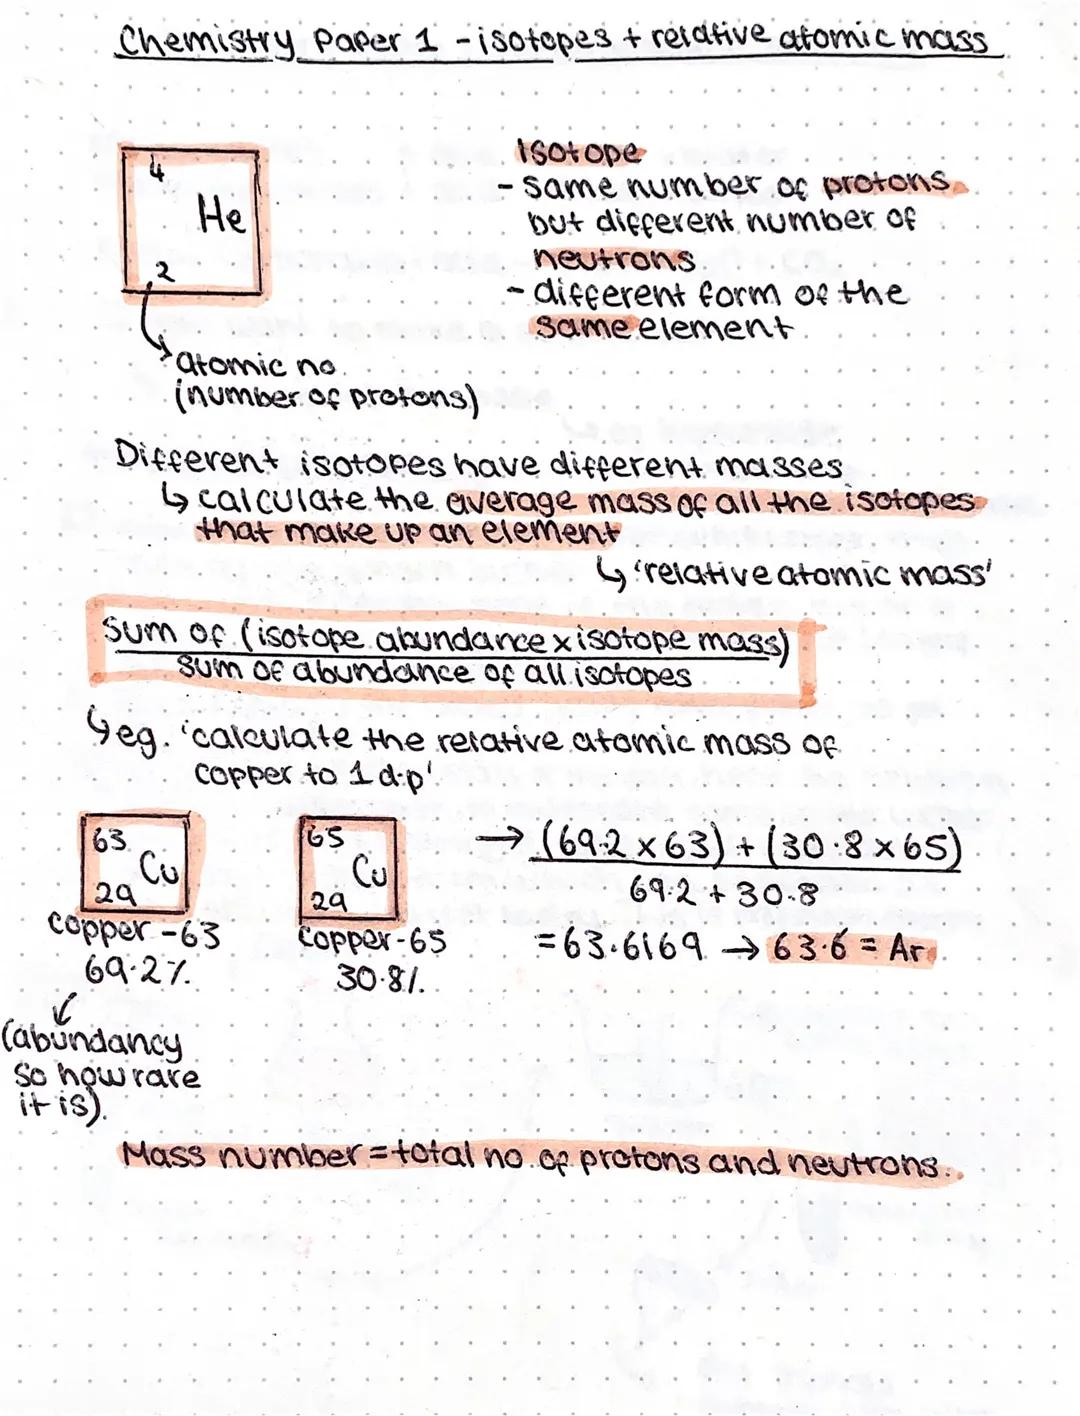 Chemistry Paper 1 - isotopes + relative atomic mass
4
He
2
atomic no.
(number of protons)
Isotope
- same number of protons
but different number of
neutrons
- different form of the
same element.
Different isotopes have different masses
↳ calculate the average mass of all the isotopes
that make up an element
↳ 'relative atomic mass'
Sum of (isotope abundance x isotope mass)
sum of abundance of all isotopes
↳ eg. 'calculate the relative atomic mass of
copper to 1 d.p'
63
Cu
29
copper -63
69.2%.
(abundancy
so how rare
it is).
65
Cu
29
copper-65
30.8%.
→ (69.2 x 63) + (30.8 x 65)
69.2 + 30.8
= 63.6169 → 63.6 = Ar
Mass number = total no. of protons and neutrons.